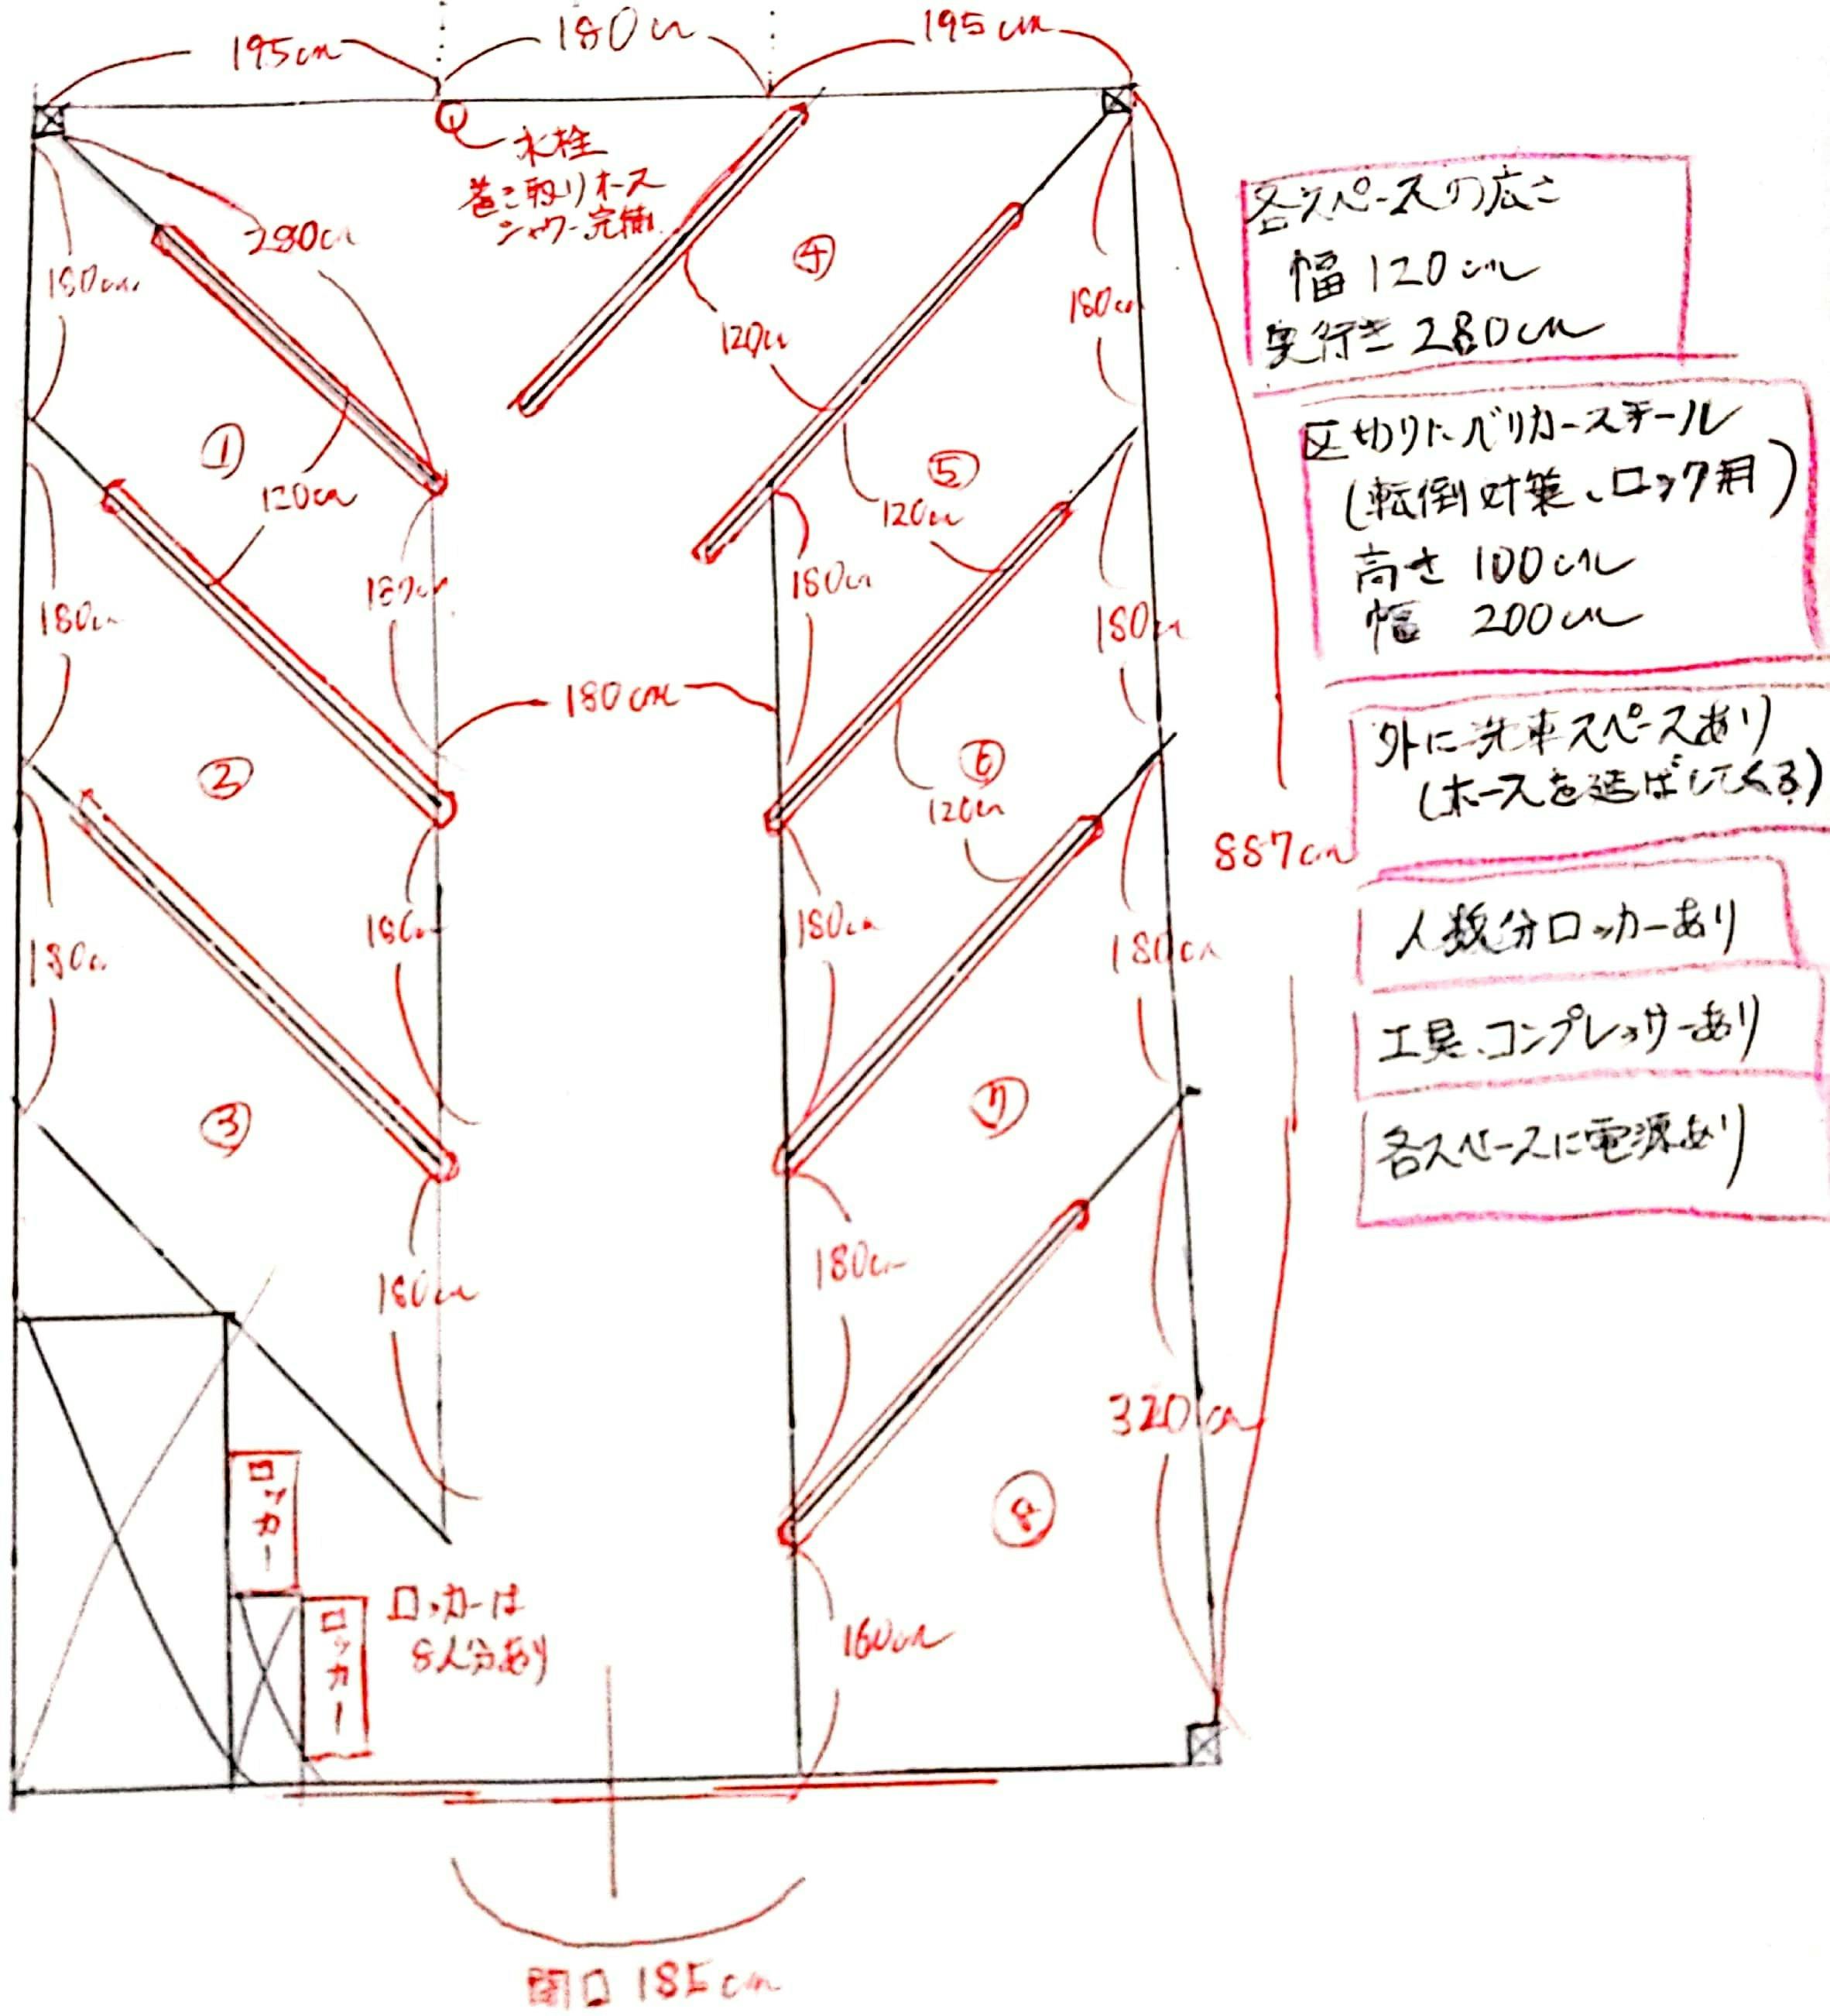 195cm
180cm
195cm
水栓
巻き取りホース
シャワー完備
280cm
180cm
④
180cm
120cm
①
120cm
⑤
120cm
180cm
180cm
180cm
180cm
180cm
②
⑥
120cm
887cm
180cm
180cm
180cm
180cm
③
⑦
180cm
180cm
320cm
⑧
ロッカー
ロッカー
ロッカーは
8人分あり
160cm
開口 185cm
各スペースの広さ
幅 120cm
奥行き 280cm
区切りにバリカースチール
(転倒対策、ロック用)
高さ 100cm
幅 200cm
外に洗車スペースあり
(ホースを延ばしてくる)
人数分ロッカーあり
工具、コンプレッサーあり
各スペースに電源あり